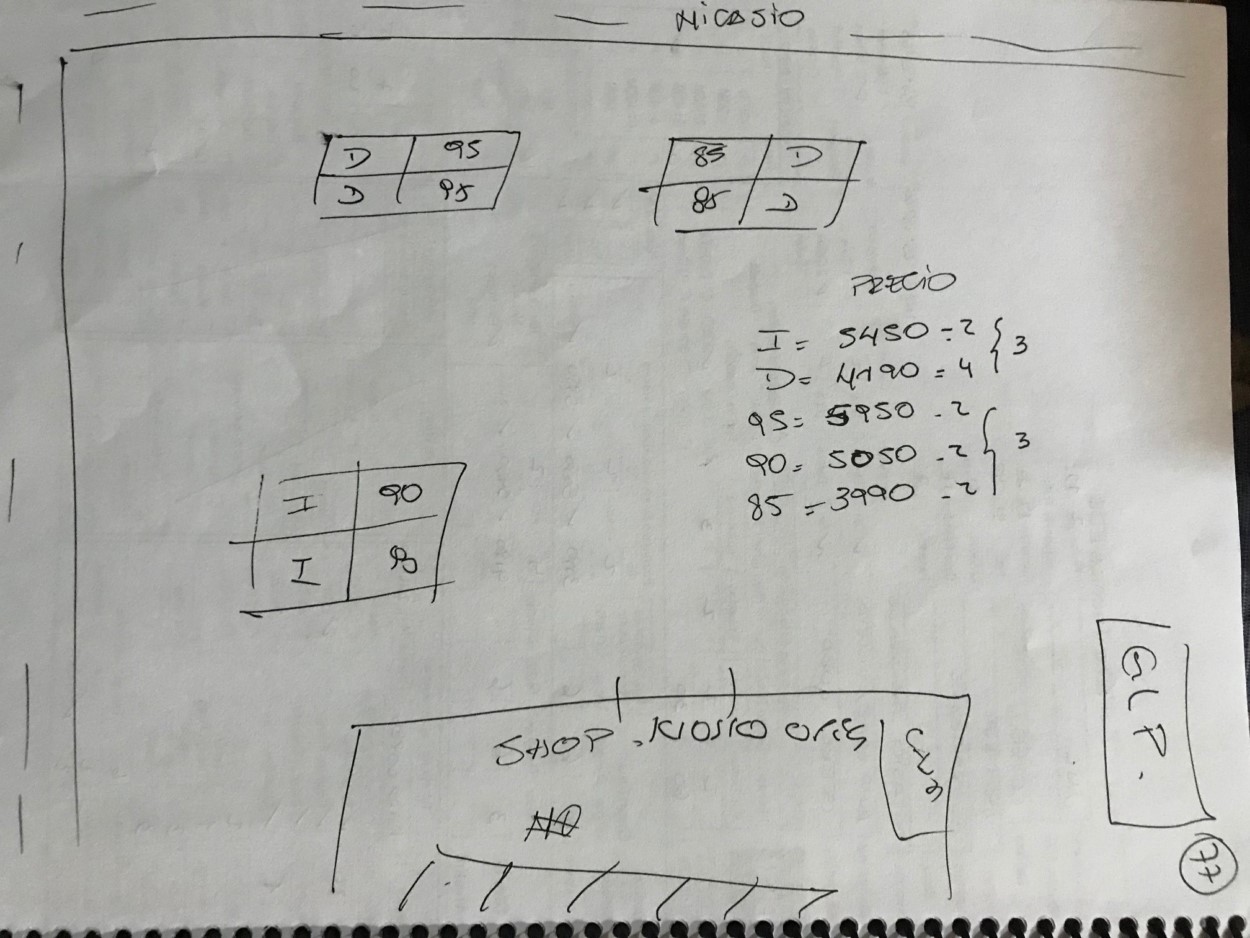 Nicasio
D 95
D 95
85 D
85 D
PRECIO
I = 5450 - 2 } 3
D = 4190 = 4
95 = 5950 - 2 } 3
90 = 5050 - 2
85 = 3990 - 2
I 90
I 90
SHOP. KIOSKO
GLP.
77